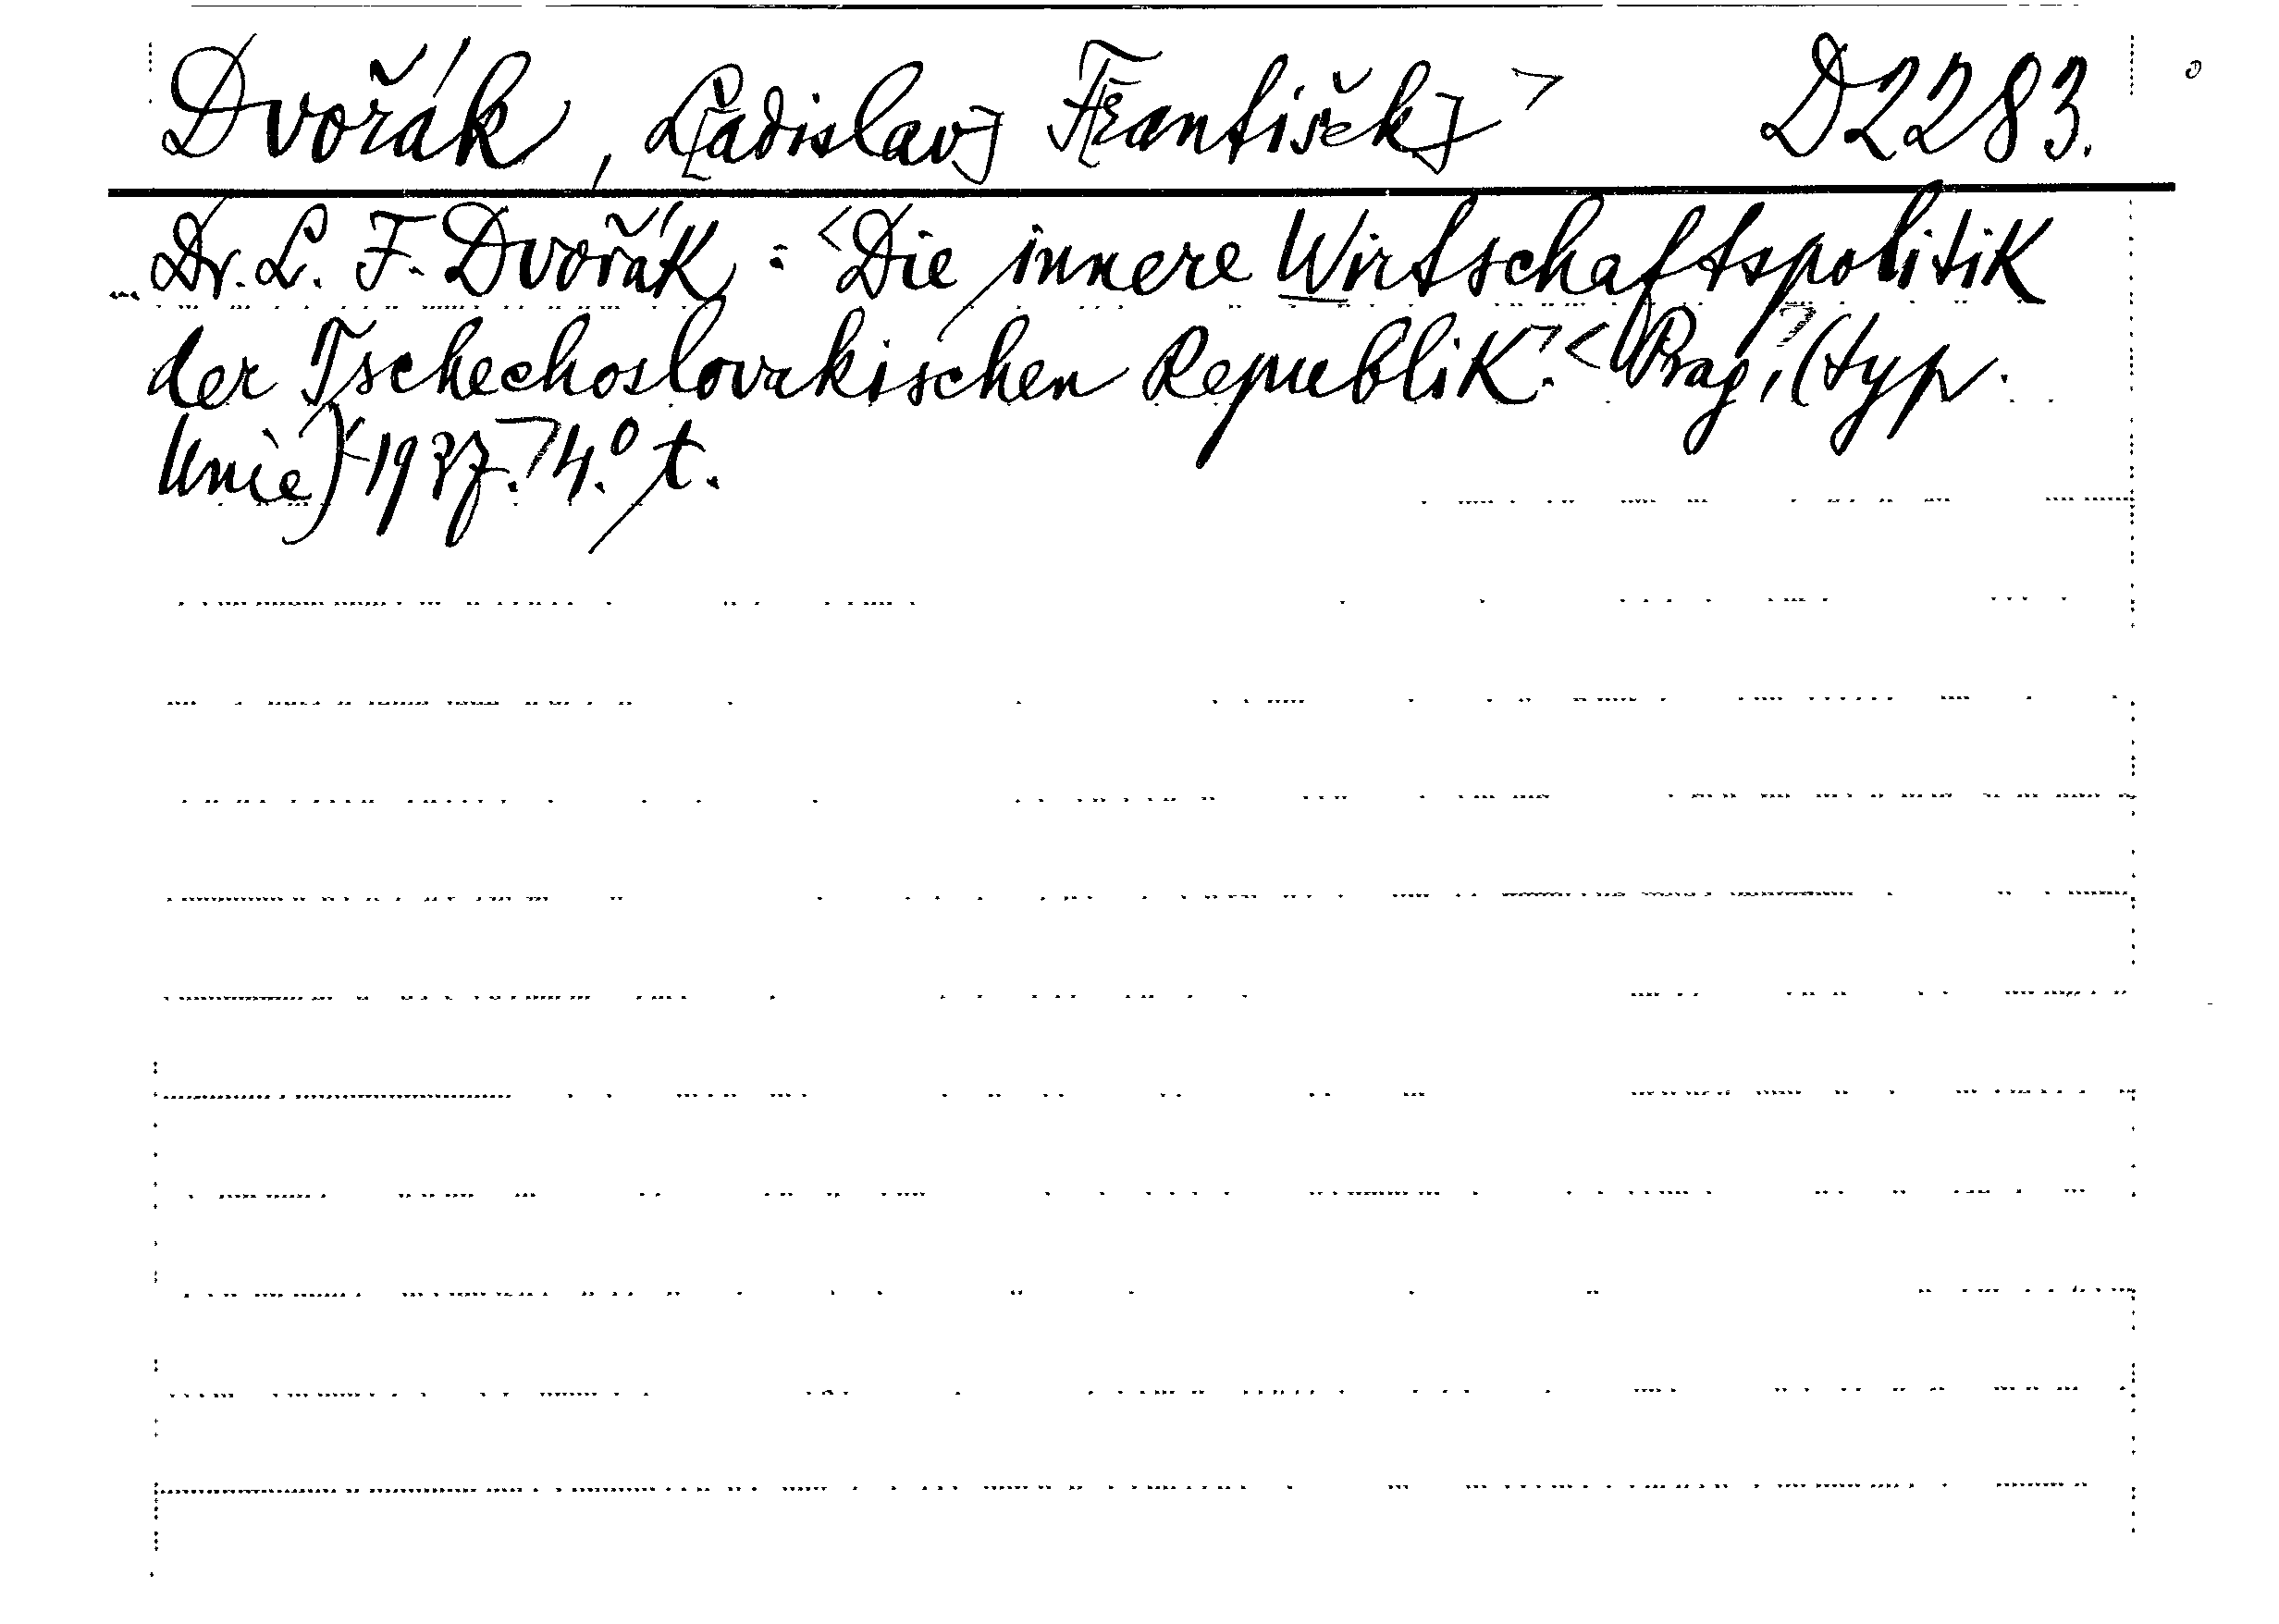 Dvořák, L[adislav] F[rantišek]> D2283.
Dr. L. F. Dvořák: <Die innere Wirtschaftspolitik
der Tschechoslovakischen Republik.> <Prag,> (typ.
Unie) <1937.> 4.° t.